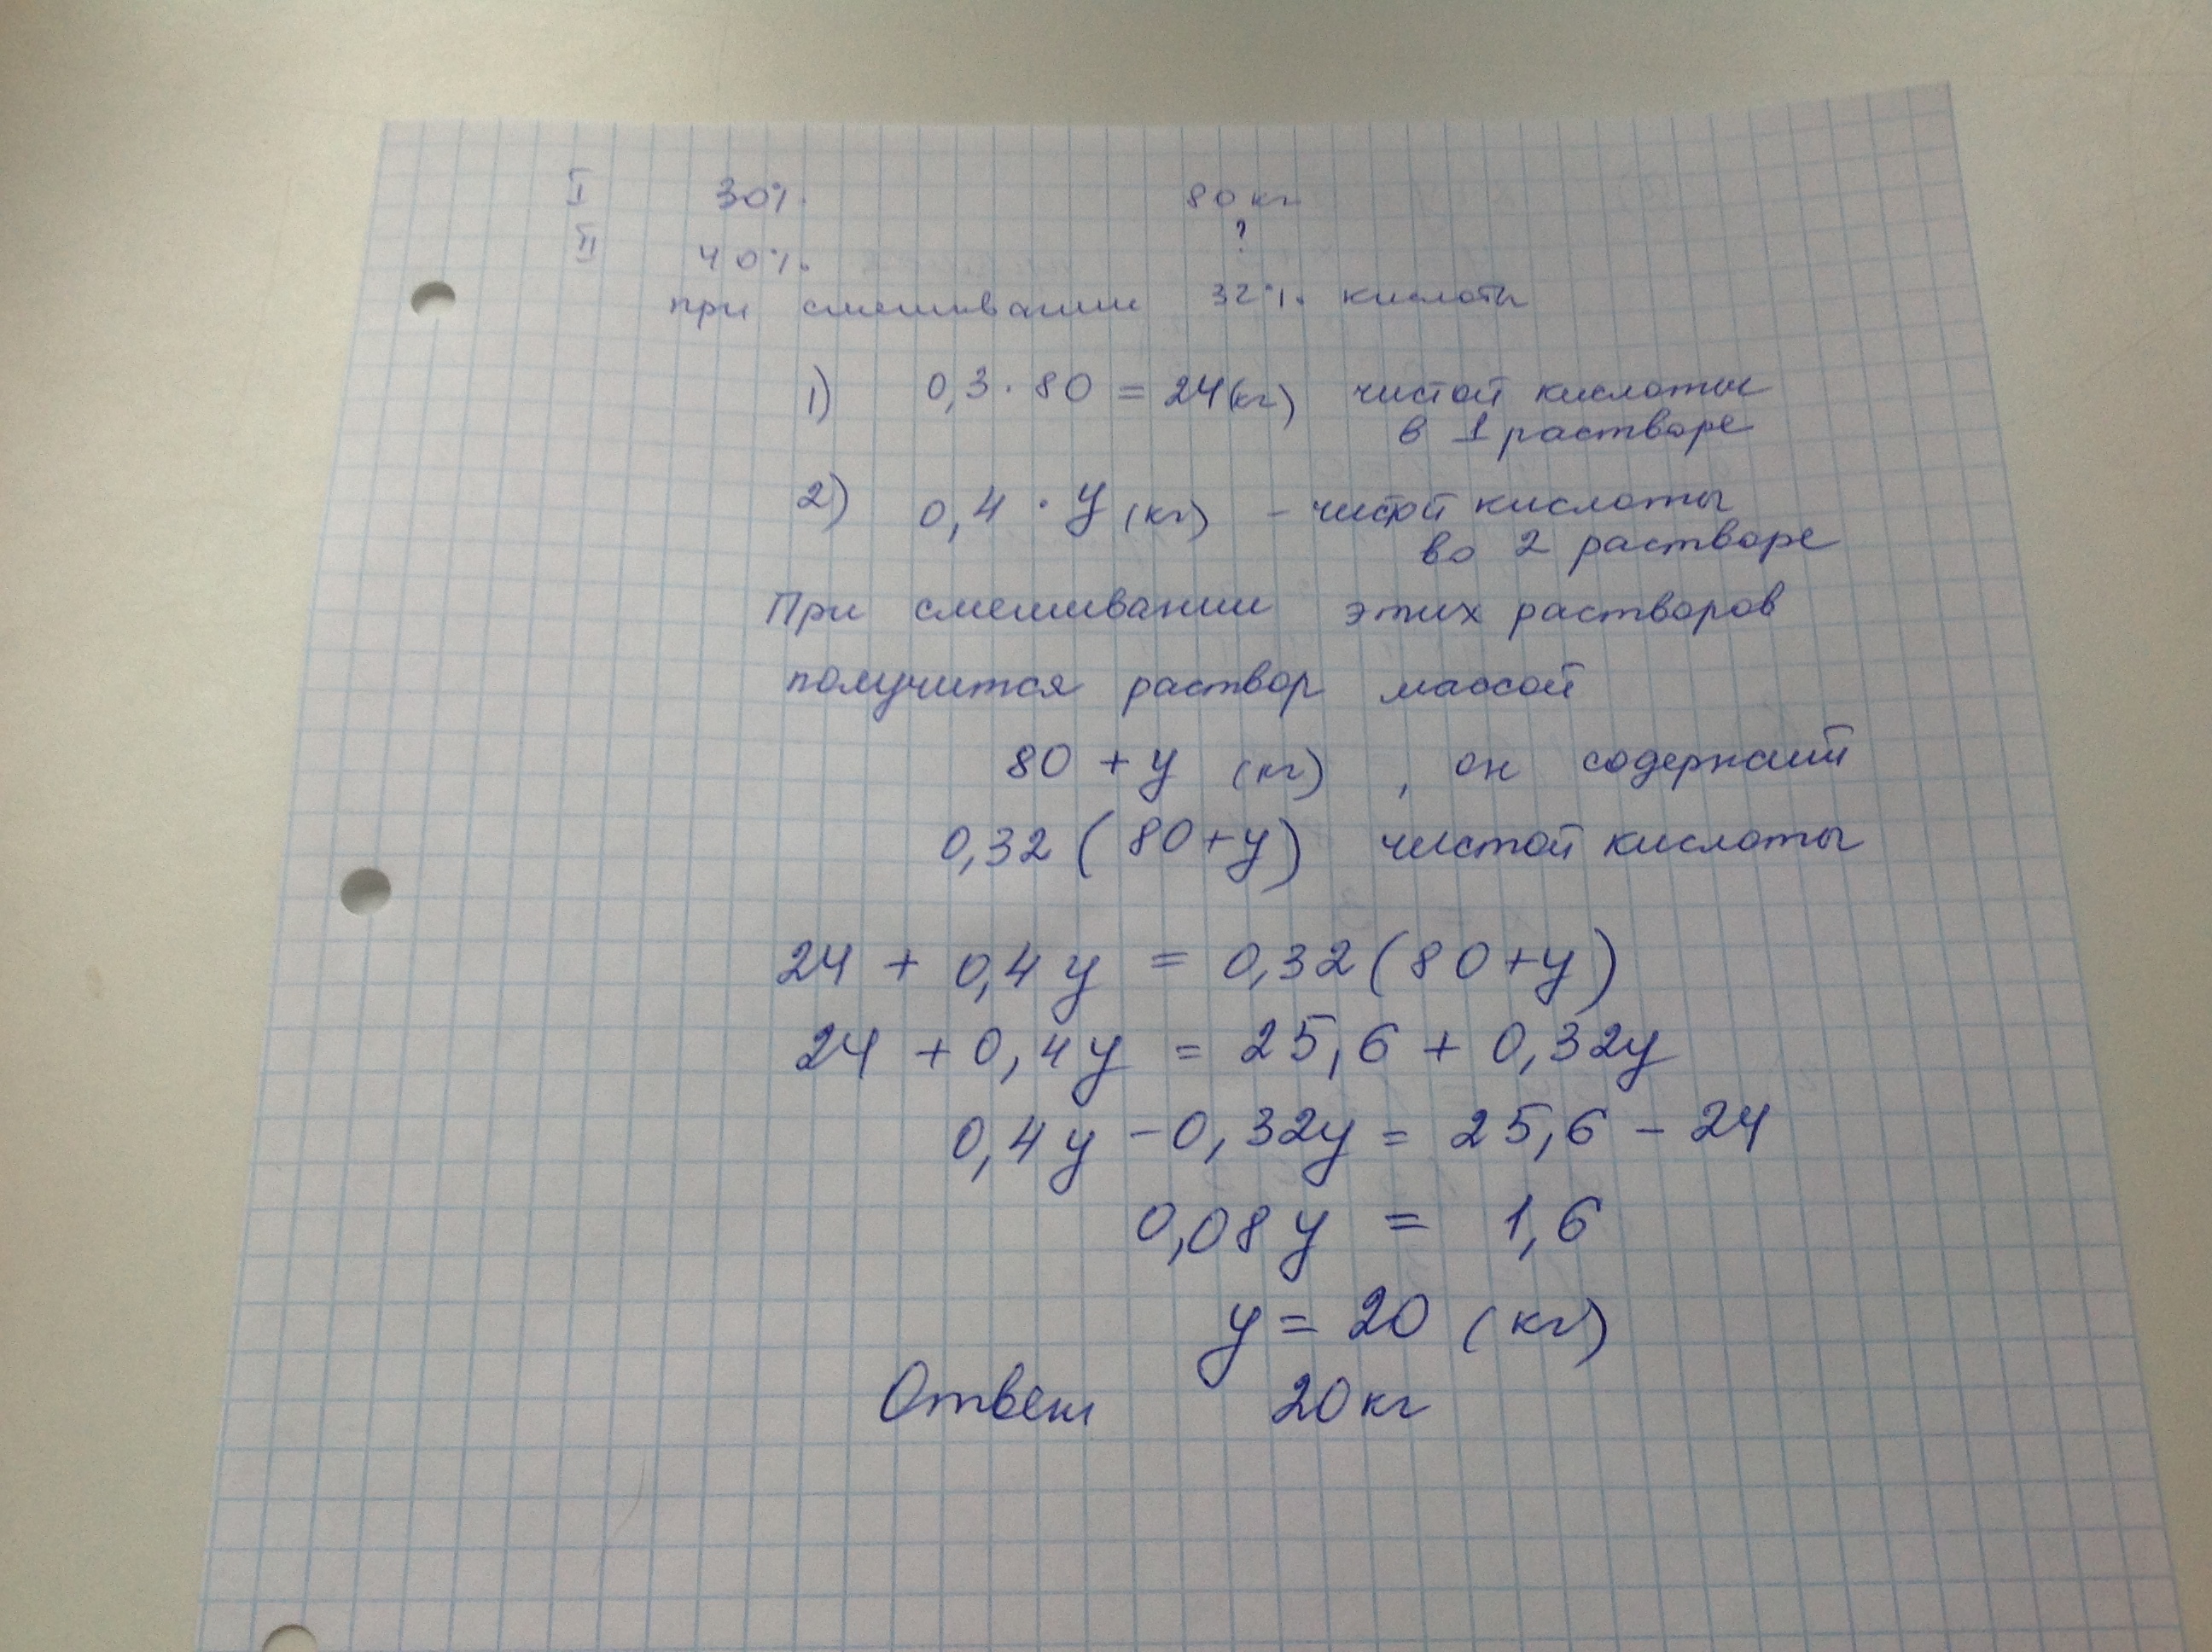 I 30%. 80 кг
II 40%. ?
при смешивании 32%. кислоты
1) 0,3 · 80 = 24(кг) чистой кислоты
в 1 растворе
2) 0,4 · y (кг) – чистой кислоты
во 2 растворе
При смешивании этих растворов
получится раствор массой
80 + y (кг) , он содержит
0,32 ( 80+y) чистой кислоты
24 + 0,4 y = 0,32 (80+y)
24 + 0,4y = 25,6 + 0,32y
0,4y – 0,32y = 25,6 – 24
0,08y = 1,6
y = 20 (кг)
Ответ 20 кг